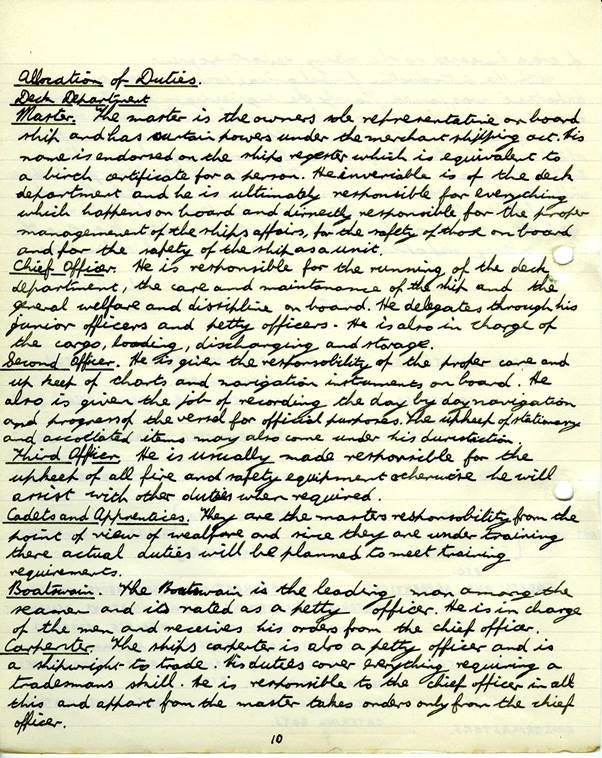 Allocation of Duties.
Deck Department
Master. The master is the owners sole representative on board
ship and has certain powes under the merchant shipping act. His
name is endorsed on the ships regester which is equivalent to
a birth certificate for a person. He inveriable is of the deck
department and he is ultimately responsible for everything
which happens on board and dirrectly responsible for the proper
management of the ships affairs, for the safety of those on board
and for the safety of the ship as a unit.
Chief Officer. He is responsible for the running of the deck
department, the care and maintenance of the ship and the
general welfare and dissipline on board. He delegates through his
junior officers and petty officers. He is also in charge of
the cargo, loading, discharging and stowage.
Second Officer. He is given the responsobility of the proper care and
up keep of charts and navigation instruments on board. He
also is given the job of recording the day by day navigation
and progress of the vessel for official purposes. The upkeep of stationary
and accotiated items may also come under his duristiction.
Third Officer. He is usually made responsible for the
upkeep of all fire and safety equipment otherwise he will
assist with other duties when required.
Cadets and Apprentices. They are the masters responsobility from the
point of view of wealfare and since they are under training
there actual duties will be planned to meet training
requirements.
Boatswain. The Boatswain is the leading man among the
seamen and is rated as a petty officer. He is in charge
of the men and receives his orders from the chief officer.
Carpenter. The ships carpenter is also a petty officer and is
a shipwright to trade. His duties cover everything requiring a
tradesmans skill. He is responsible to the chief officer in all
this and appart from the master takes orders only from the chief
officer.
10